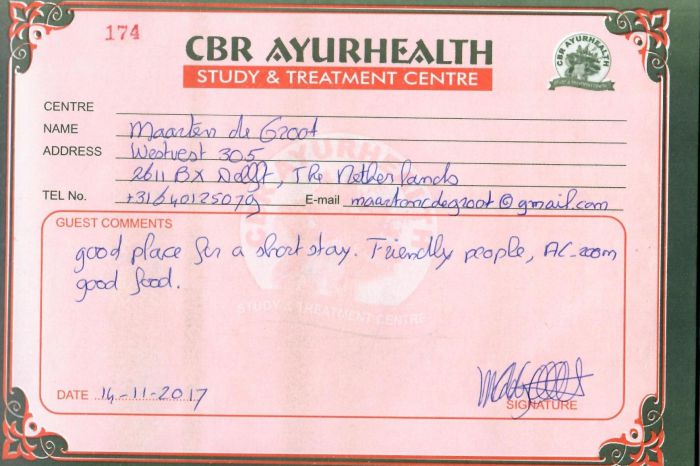 174
CBR AYURHEALTH
STUDY & TREATMENT CENTRE
CBR AYURHEALTH
CENTRE
NAME Maarten de Groot
ADDRESS Westvest 305
2611 BX Delft, The Netherlands
TEL No. +31640125079 E-mail maartencdegroot@gmail.com
GUEST COMMENTS
good place for a short stay. Friendly people, AC-room
good food.
STUDY & TREATMENT CENTRE
DATE 14-11-2017
SIGNATURE